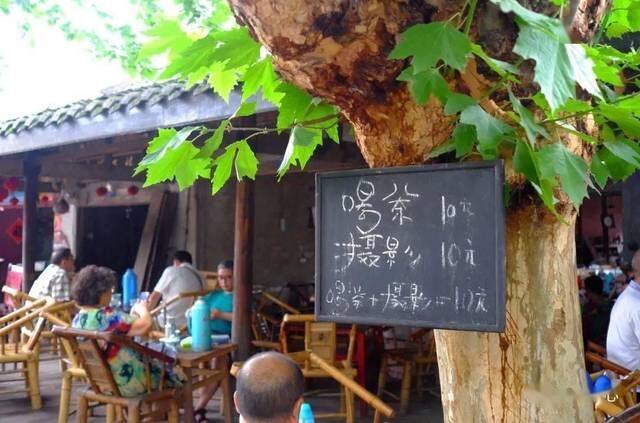 喝茶 10元
摄影 10元
喝茶+摄影=10元
心